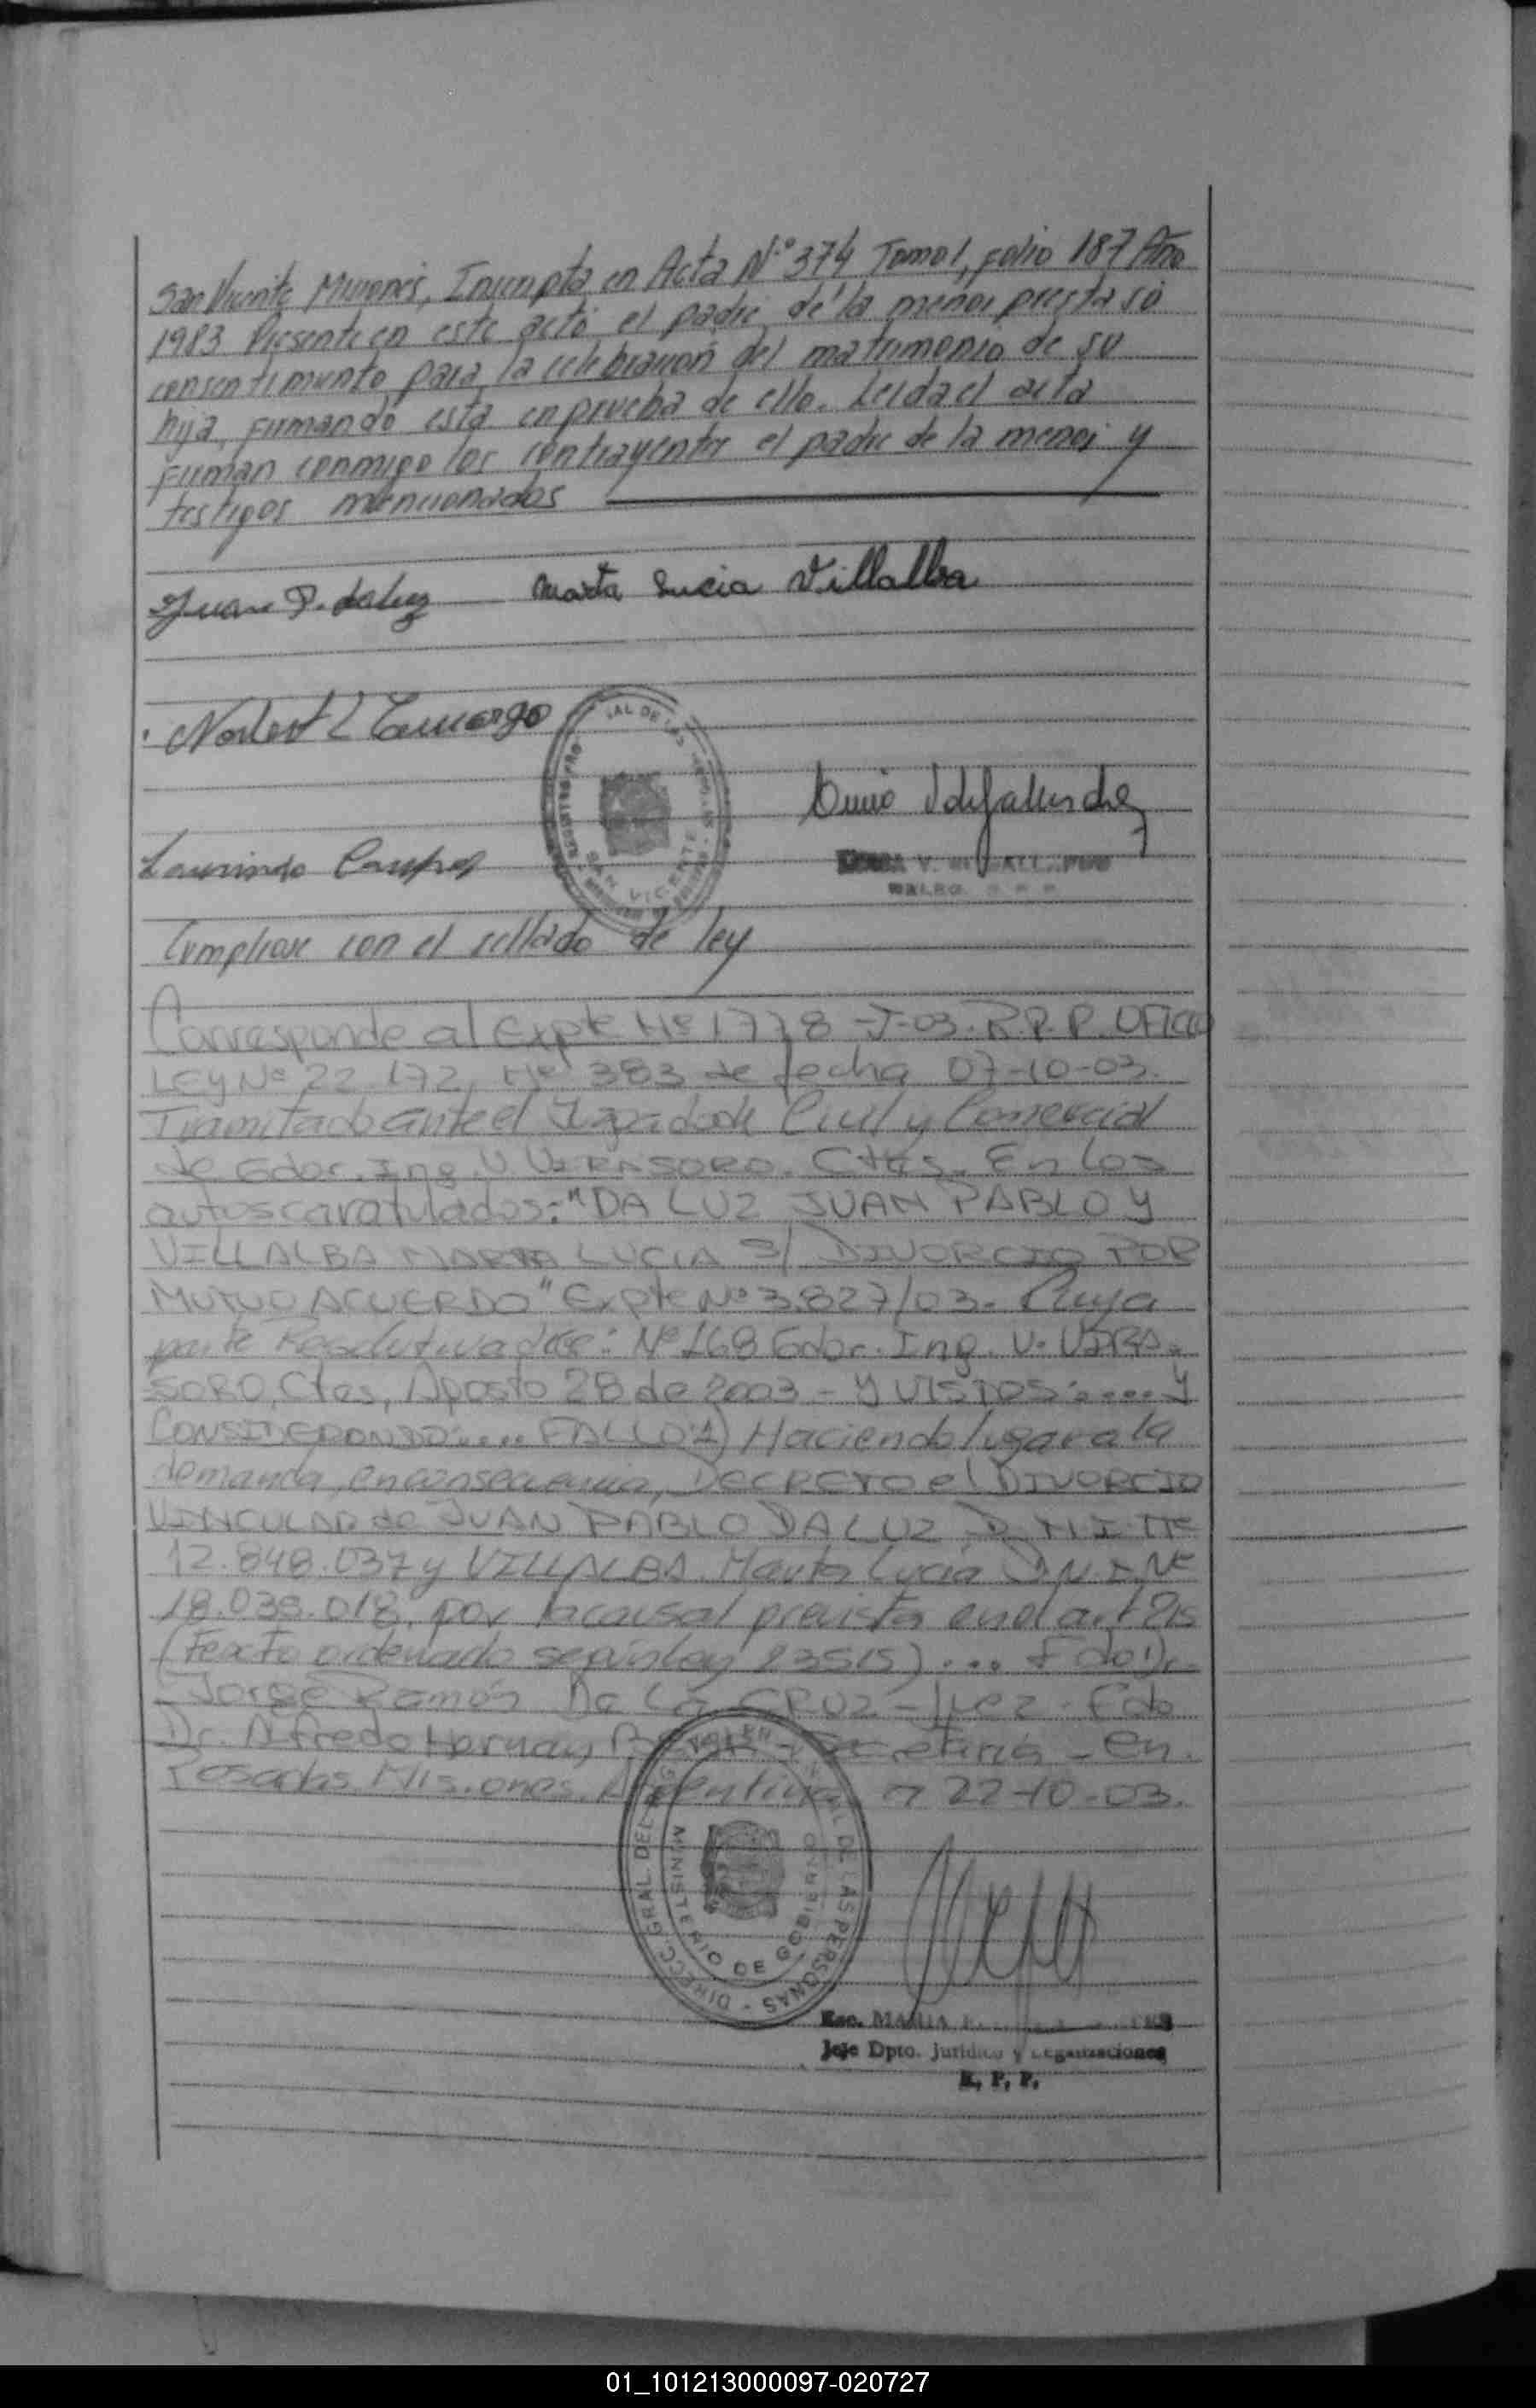 San Vicente Misiones, Inscripta en Acta Nº 374 Tomo 1, folio 187 Año
1983 Presente en este acto el padre de la menor presta su
consentimiento para la celebracion del matrimonio de su
hija, firmando esta en prueba de ello. Leida el acta
firman conmigo los contrayentes el padre de la menor y
testigos mencionados
Juan P. da luz Marta Lucia Villalba
Camargo
SAN VICENTE
Laurindo
Cumpliose con el sellado de ley
Corresponde al Expte Nº 1778-J-03. R.P.P. OFICIO
LEY Nº 22.172, Nº 383 de fecha 07-10-03.
Tramitado ante el Juzgado de Civil y Comercial
de Gdor. Ing. V. VIRASORO. Ctes. En los
autos caratulados: "DA LUZ JUAN PABLO Y
VILLALBA MARTA LUCIA S/ DIVORCIO POR
MUTUO ACUERDO" Expte Nº 3.827/03. Cuya
parte Resolutiva dice: Nº 168 Gdor. Ing. V. VIRA-
SORO, Ctes, Agosto 28 de 2003 - Y VISTOS:.... Y
CONSIDERANDO:.... FALLO: 1) Haciendo lugar a la
demanda, en consecuencia, DECRETO el DIVORCIO
VINCULAR de JUAN PABLO DA LUZ D.N.I. Nº
12.848.037 y VILLALBA, Marta Lucia D.N.I. Nº
18.038.018, por la causal prevista en el art 215
(Texto ordenado según ley 23515).... Fdo Dr.
Jorge Ramón De La CRUZ - Juez. Fdo
Dr. Alfredo Hernan - Secretario - En
Posadas. Misiones. Argentina, a 22-10-03.
DIRECC. GRAL. DEL DE LAS PERSONAS
MINISTERIO DE GOBIERNO
Esc. MARIA
Jefe Dpto. Jurídico y Organizaciones
R. P. P.
01_101213000097-020727